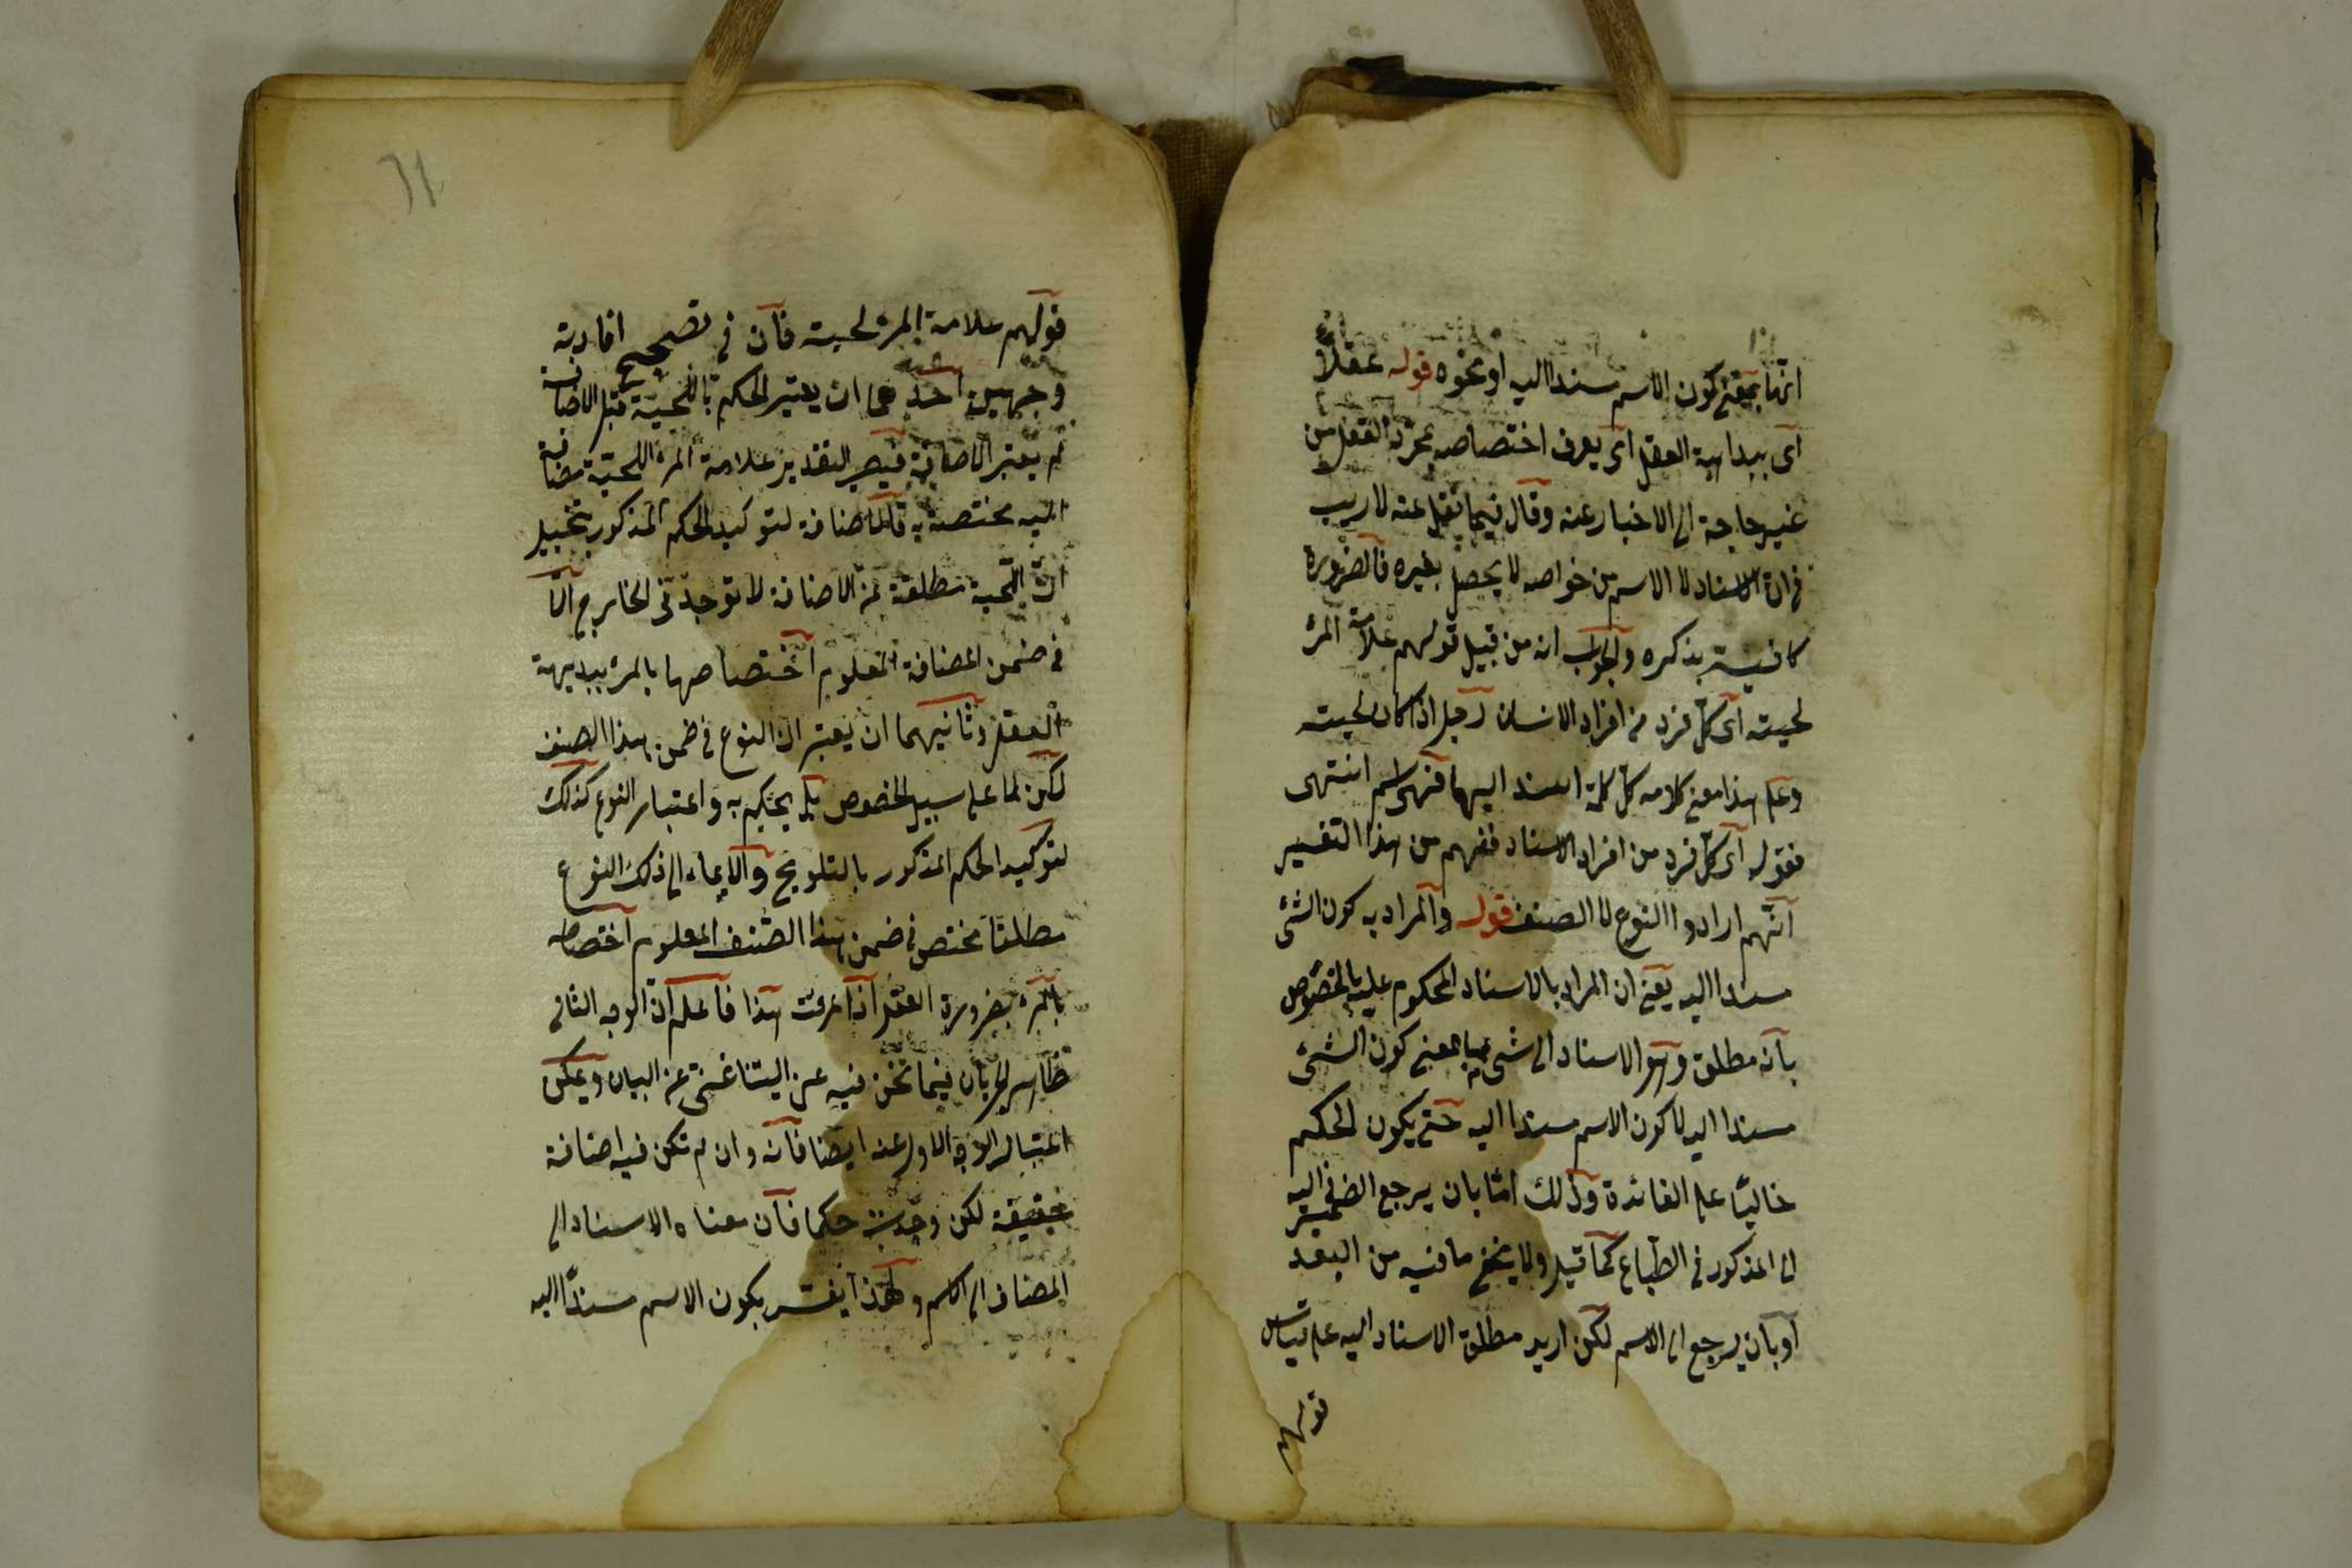 انها بمعنى كون الاسم مسندا اليه او نحوه قوله عقلاً
اى ببداهة العقل اى يعرف اختصاصه بمجرد العقل من
غير حاجة الى الاخبار عنه وقال فيما نقل عنه لا ريب
فى ان الاسناد الى الاسم من خواصه لا يحصل بغيره فالضرورة
كافية بذكره والجواب انه من قبيل قولهم علامة المرء
لحيته اى كل فرد من افراد الانسان رجل اذا كان لحيته
وعلى هذا معنى كلامه كل كلمة اسند اليها فهى اسم انتهى
فقوله اى كل فرد من افراد الاسناد ففهم من هذا التفسير
انهم ارادوا النوع لا الصنف قوله والمراد به كون الشئ
مسندا اليه يعنى ان المراد بالاسناد المحكوم عليه بالخصوص
بانه مطلق وهو الاسناد الى شئ بمعنى كون الشئ
مسندا اليه لا كون الاسم مسندا اليه حتى يكون الحكم
خاليًا على الفائدة وذلك امّا بان يرجع الضمير فى اليه
الى المذكور فى الطباع كما قيل ولا يخفى ما فيه من البعد
او بان يرجع الى الاسم لكن اريد مطلق الاسناد اليه على قياس
قولهم
٦١
قولهم علامة المرء لحيته فان فى تصحيح افادته
وجهين احدهما ان يعتبر الحكم باللحية قبل الاضافة
ثم يعتبر الاضافة فيصير التقدير علامة المرء اللحية مضافة
اليه مختصة به فالاضافة لتوكيد الحكم المذكور بتخييل
ان اللحية مطلقة عن الاضافة لا توجد فى الخارج الا
فى ضمن المضافة المعلوم اختصاصها بالمرء ببديهة
العقل وثانيهما ان يعتبر ان النوع فى ضمن هذا الصنف
لكن لا على سبيل الخصوص بل يحكم به واعتبار النوع كذلك
لتوكيد الحكم المذكور بالتلويح والايماء الى ذلك النوع
مطلقا مختص فى ضمن هذا الصنف المعلوم اختصاصه
بالمرء بضرورة العقل اذا عرفت هذا فاعلم ان الوجه الثانى
ظاهر الجريان فيما نحن فيه غنى عن البيان ويمكن
اعتبار الوجه الاول عنه ايضا فانه وان لم تكن فيه اضافة
حقيقة لكن وجدت حكما فان معناه الاسناد الى
المضاف الى الاسم ولهذا يفسر بكون الاسم مسندًا اليه